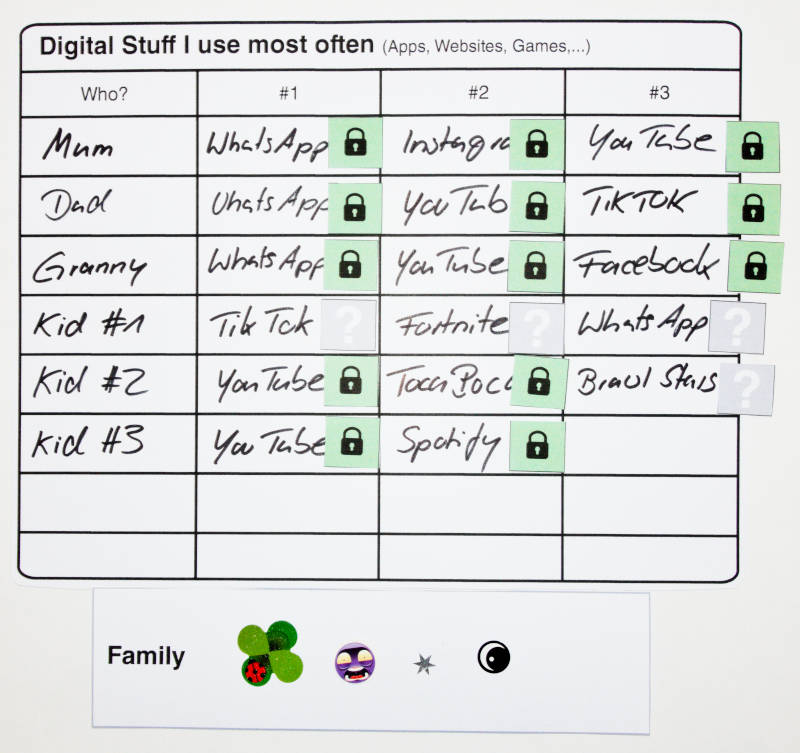 Digital Stuff I use most often (Apps, Websites, Games,...)
Who? #1 #2 #3
Mum WhatsApp Instagra YouTube
Dad WhatsApp YouTub TikTok
Granny WhatsApp YouTube Facebook
Kid #1 TikTok ? Fortnite ? WhatsApp ?
Kid #2 YouTube Toca Boca Brawl Stars ?
Kid #3 YouTube Spotify
Family